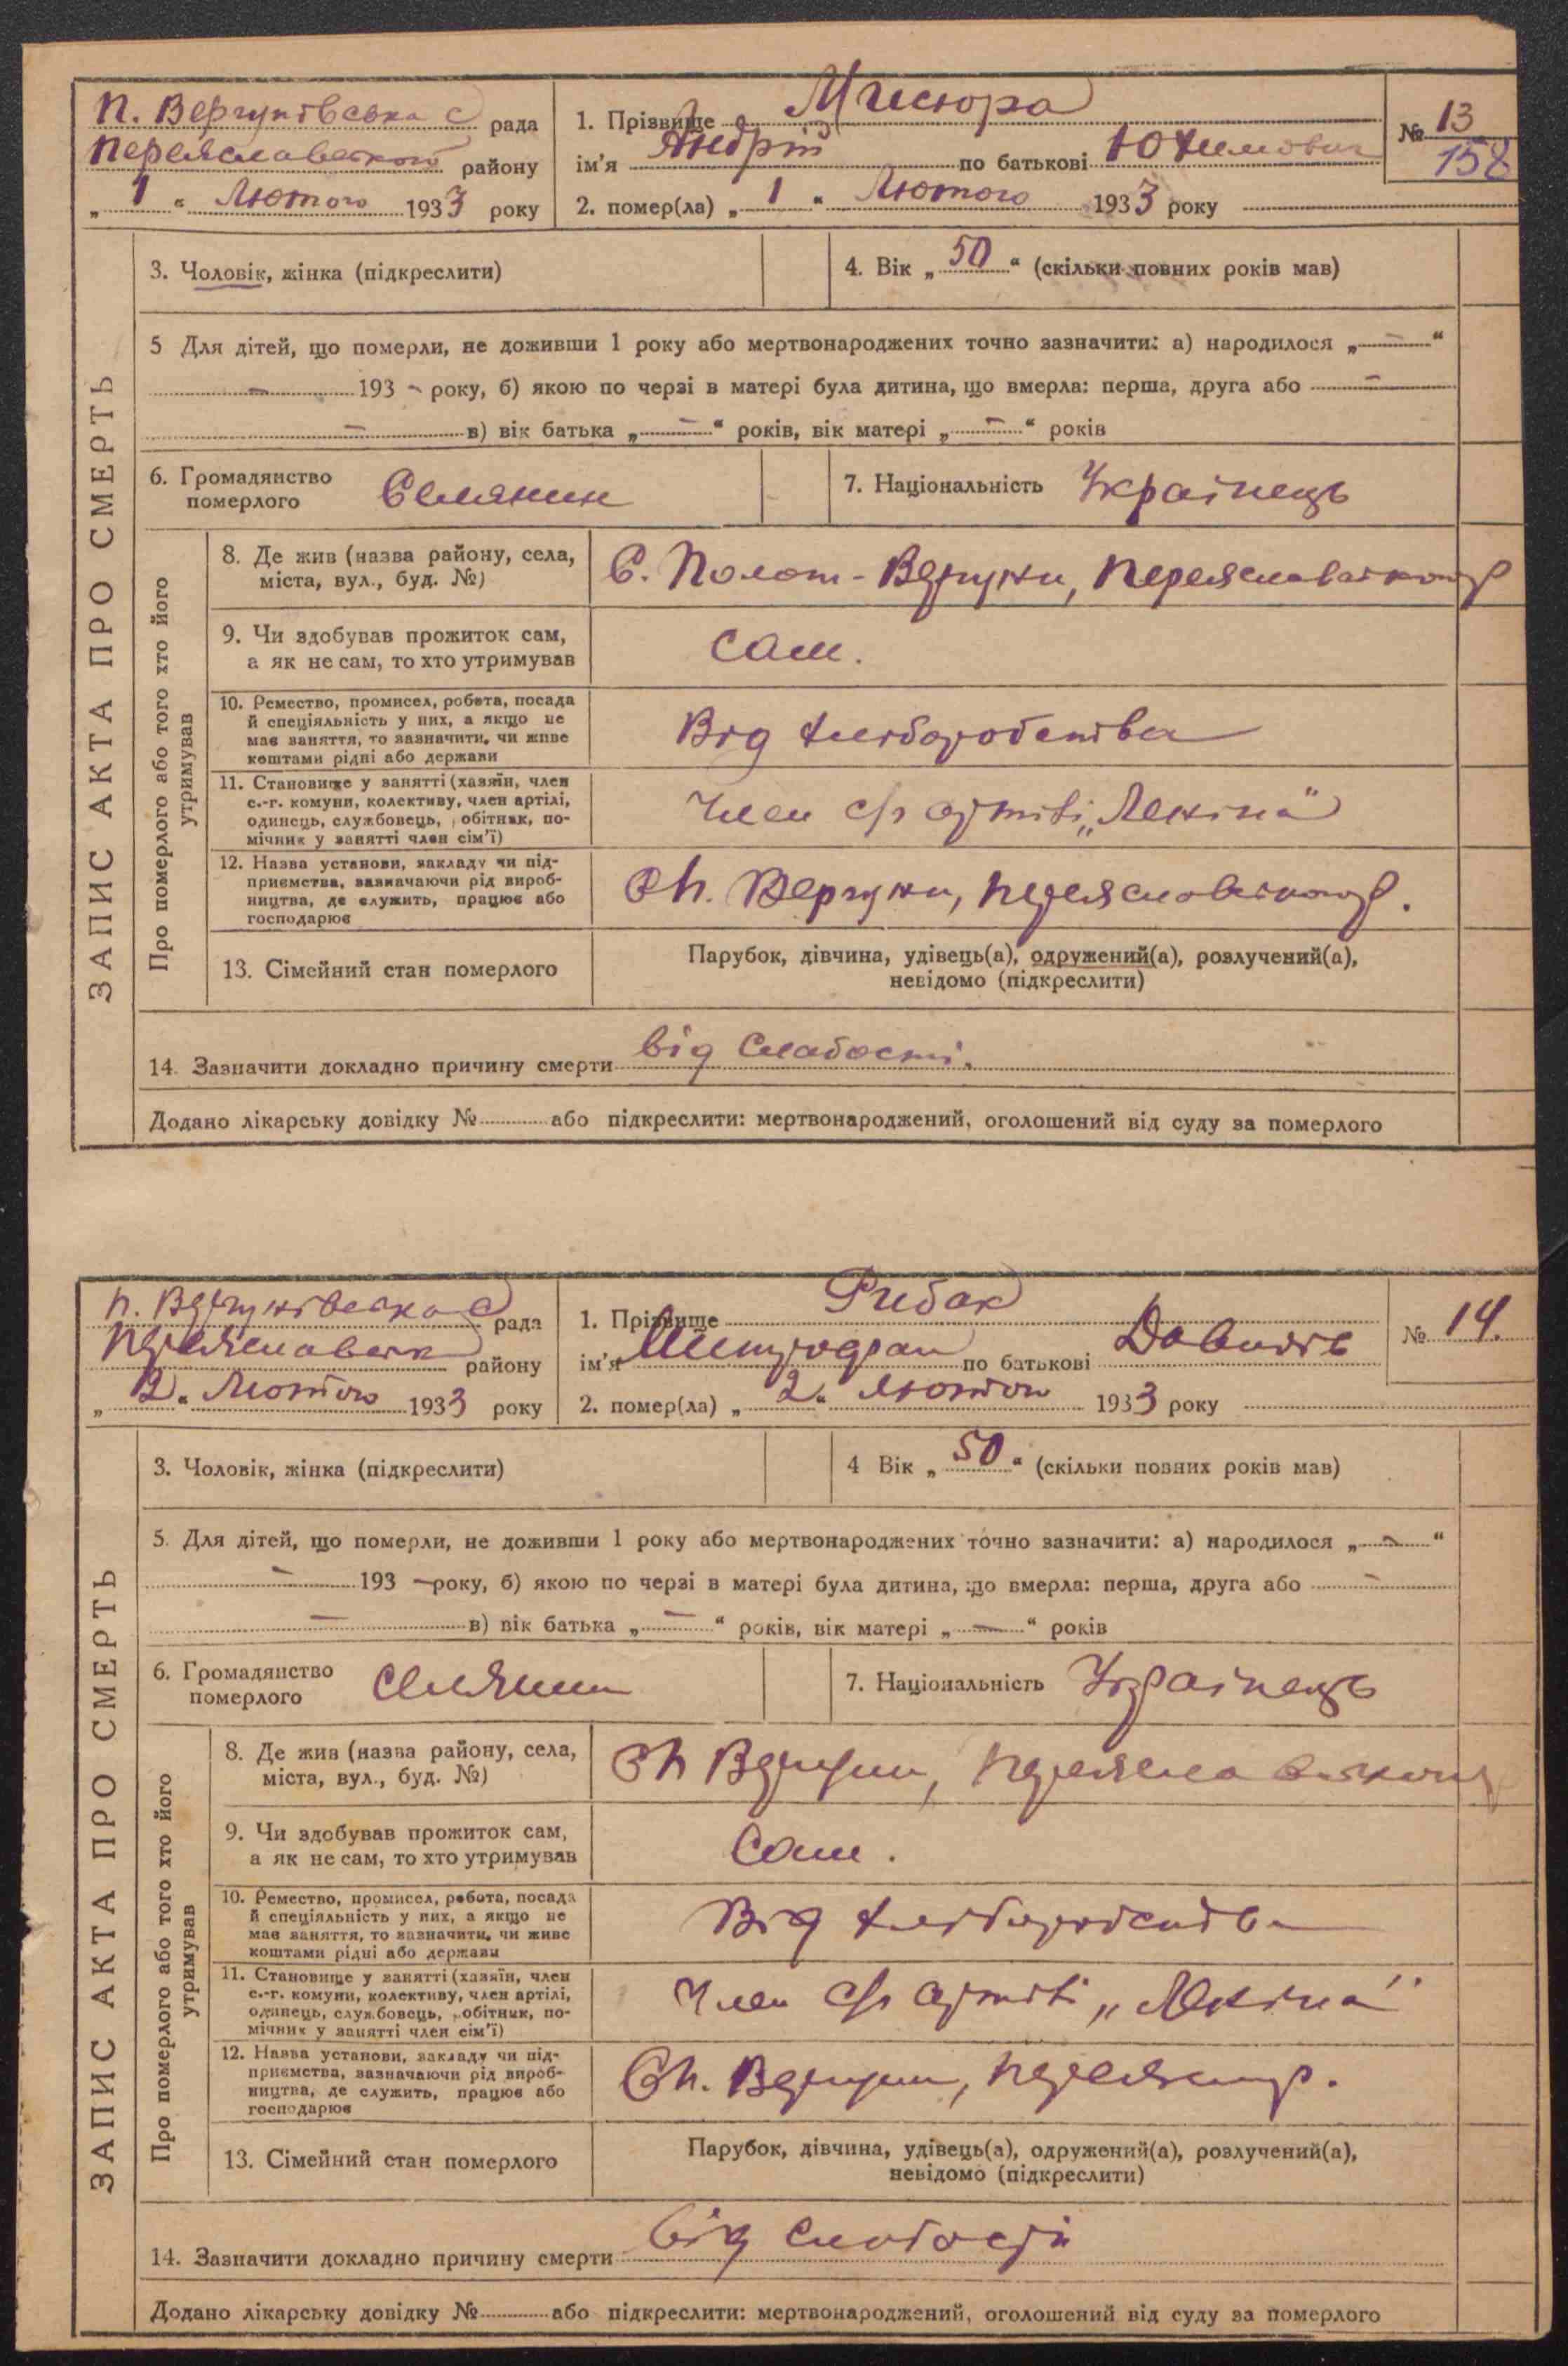 П. Вергунівська с рада
Переяславського району
„ 1 “ Лютого 1933 року
1. Прізвище Мисюра
ім'я Андрій по батькові Юхимович
2. помер(ла) „ 1 “ Лютого 1933 року
№ 13
158
ЗАПИС АКТА ПРО СМЕРТЬ
3. Чоловік, жінка (підкреслити)
4. Вік „ 50 “ (скільки повних років мав)
5 Для дітей, що померли, не доживши 1 року або мертвонароджених точно зазначити: а) народилося „ — “
— 193 – року, б) якою по черзі в матері була дитина, що вмерла: перша, друга або —
— в) вік батька „ — “ років, вік матері „ — “ років
6. Громадянство
померлого
Селянин
7. Національність Українець
Про померлого або того хто його
утримував
8. Де жив (назва району, села,
міста, вул., буд. №)
С. Полог-Вергуни, Переяславського р
9. Чи здобував прожиток сам,
а як не сам, то хто утримував
Сам.
10. Ремество, промисел, робота, посада
й спеціяльність у них, а якщо не
має заняття, то зазначити, чи живе
коштами рідні або держави
Від хліборобства
11. Становище у занятті (хазяїн, член
с.-г. комуни, колективу, член артілі,
одинець, службовець, робітник, по-
мічник у занятті член сім'ї)
Член с/г артілі „Леніна"
12. Назва установи, закладу чи під-
приємства, зазначаючи рід вироб-
ництва, де служить, працює або
господарює
СП. Вергуни, Переяславського р.
13. Сімейний стан померлого
Парубок, дівчина, удівець(а), одружений(а), розлучений(а),
невідомо (підкреслити)
14. Зазначити докладно причину смерти від слабості.
Додано лікарську довідку № або підкреслити: мертвонароджений, оголошений від суду за померлого
П. Вергунівська С рада
Переяславськ району
„ 2 “ Лютого 1933 року
1. Прізвище Рибак
ім'я по батькові
2. помер(ла) „ 2 “ Лютого 1933 року
№ 14.
ЗАПИС АКТА ПРО СМЕРТЬ
3. Чоловік, жінка (підкреслити)
4 Вік „ 50 “ (скільки повних років мав)
5. Для дітей, що померли, не доживши 1 року або мертвонароджених точно зазначити: а) народилося „ — “
— 193 – року, б) якою по черзі в матері була дитина, що вмерла: перша, друга або —
— в) вік батька „ — “ років, вік матері „ — “ років
6. Громадянство
померлого
Селянин
7. Національність Українець
Про померлого або того хто його
утримував
8. Де жив (назва району, села,
міста, вул., буд. №)
СП Вергуни, Переяславського
9. Чи здобував прожиток сам,
а як не сам, то хто утримував
Сам.
10. Ремество, промисел, робота, посада
й спеціяльність у них, а якщо не
має заняття, то зазначити, чи живе
коштами рідні або держави
Від хліборобства
11. Становище у занятті (хазяїн, член
с.-г. комуни, колективу, член артілі,
одинець, службовець, робітник, по-
мічник у занятті член сім'ї)
Член с/г артілі „Леніна"
12. Назва установи, закладу чи під-
приємства, зазначаючи рід вироб-
ництва, де служить, працює або
господарює
СП. Вергуни, Переяслр.
13. Сімейний стан померлого
Парубок, дівчина, удівець(а), одружений(а), розлучений(а),
невідомо (підкреслити)
14. Зазначити докладно причину смерти від слабості
Додано лікарську довідку № або підкреслити: мертвонароджений, оголошений від суду за померлого